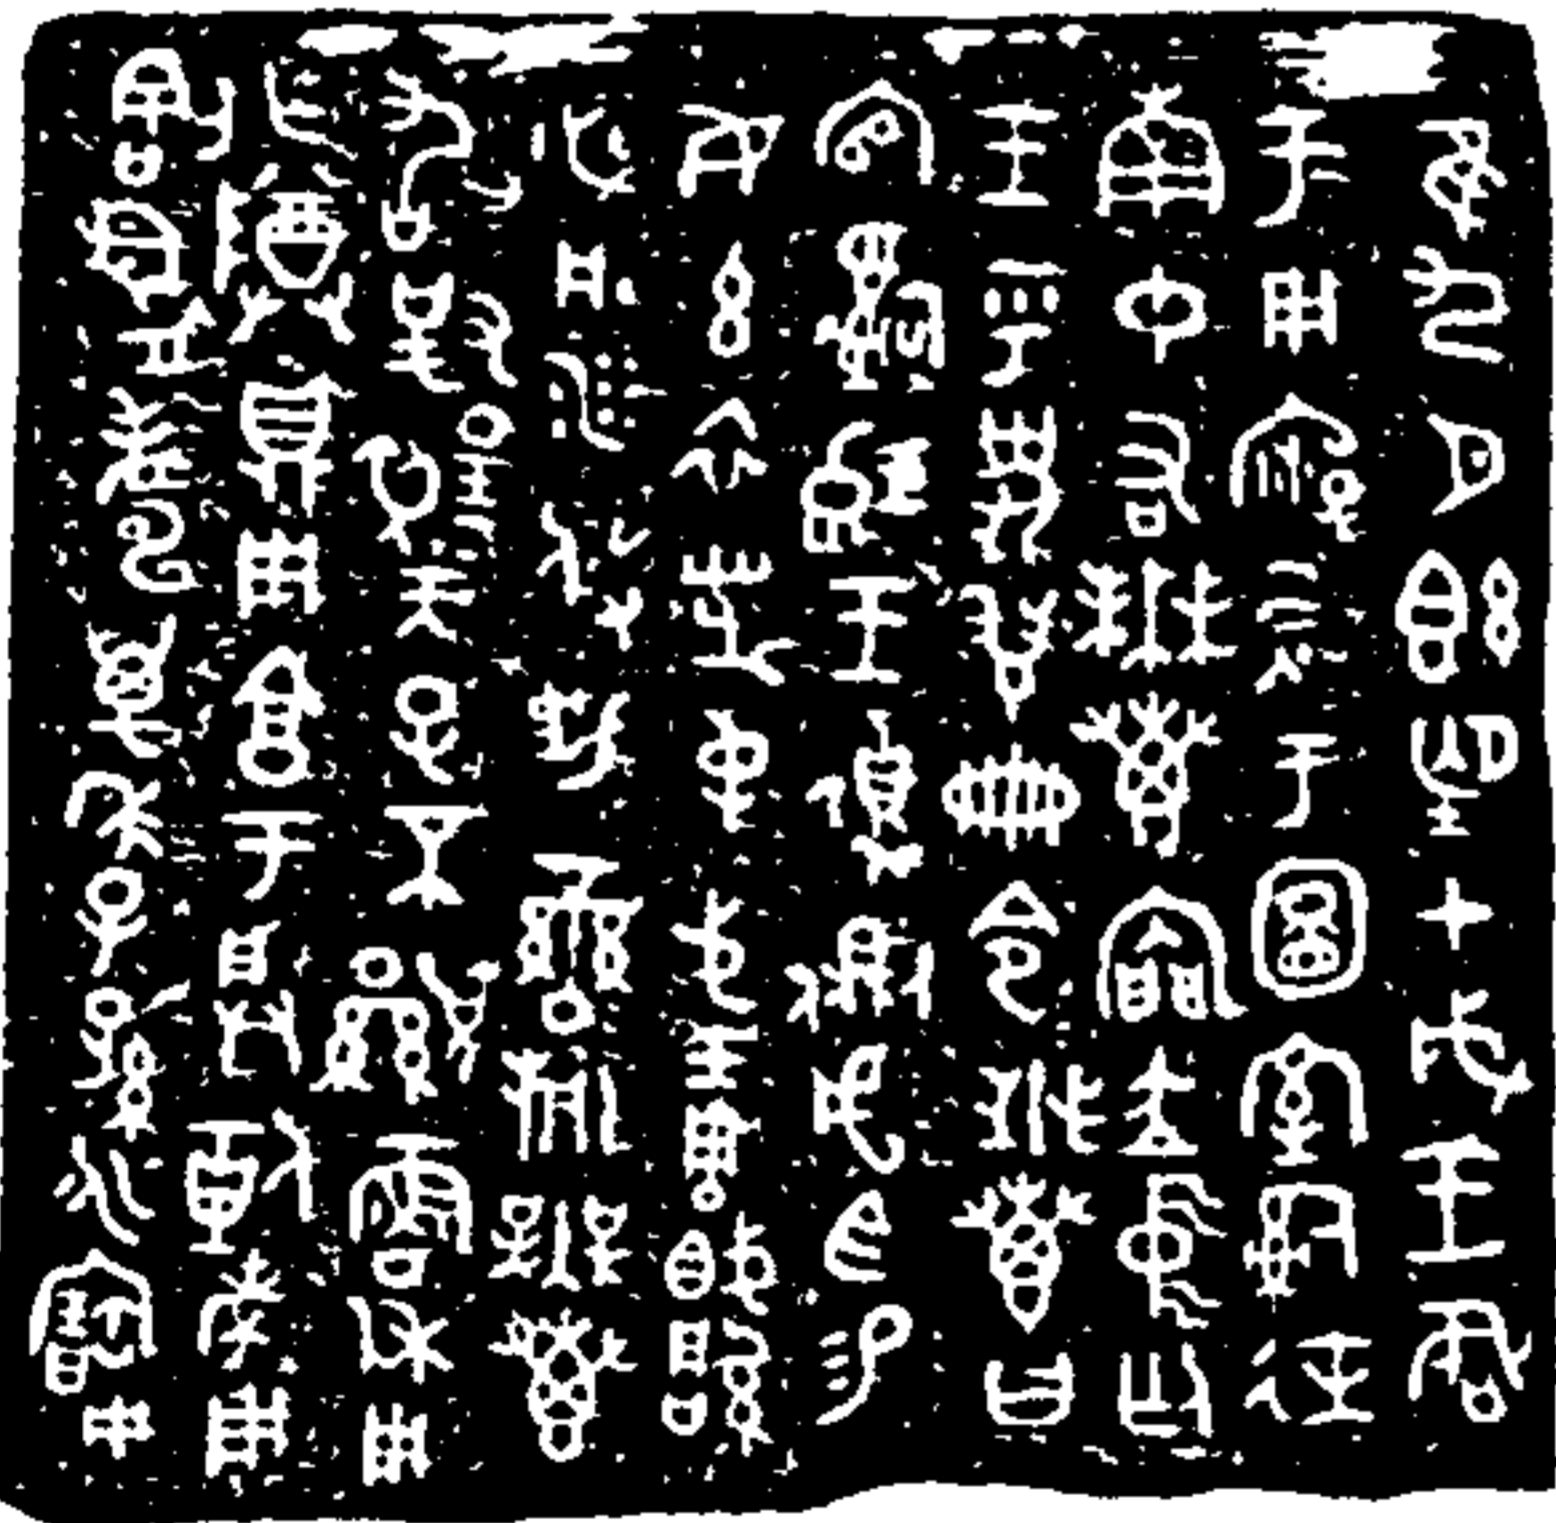 隹九月既望甲戌王各
于周廟述于圖室司徒
南中右無叀內門立中廷
王乎史翏冊令無叀曰
官𤔲穆王遉側虎臣易
女玄衣黹屯戈琱㦸
必彤沙攸勒䜌旂無叀
敢對揚天子不顯魯休用
乍尊鼎用享于朕剌考用
割眉壽萬年子孫永寶用